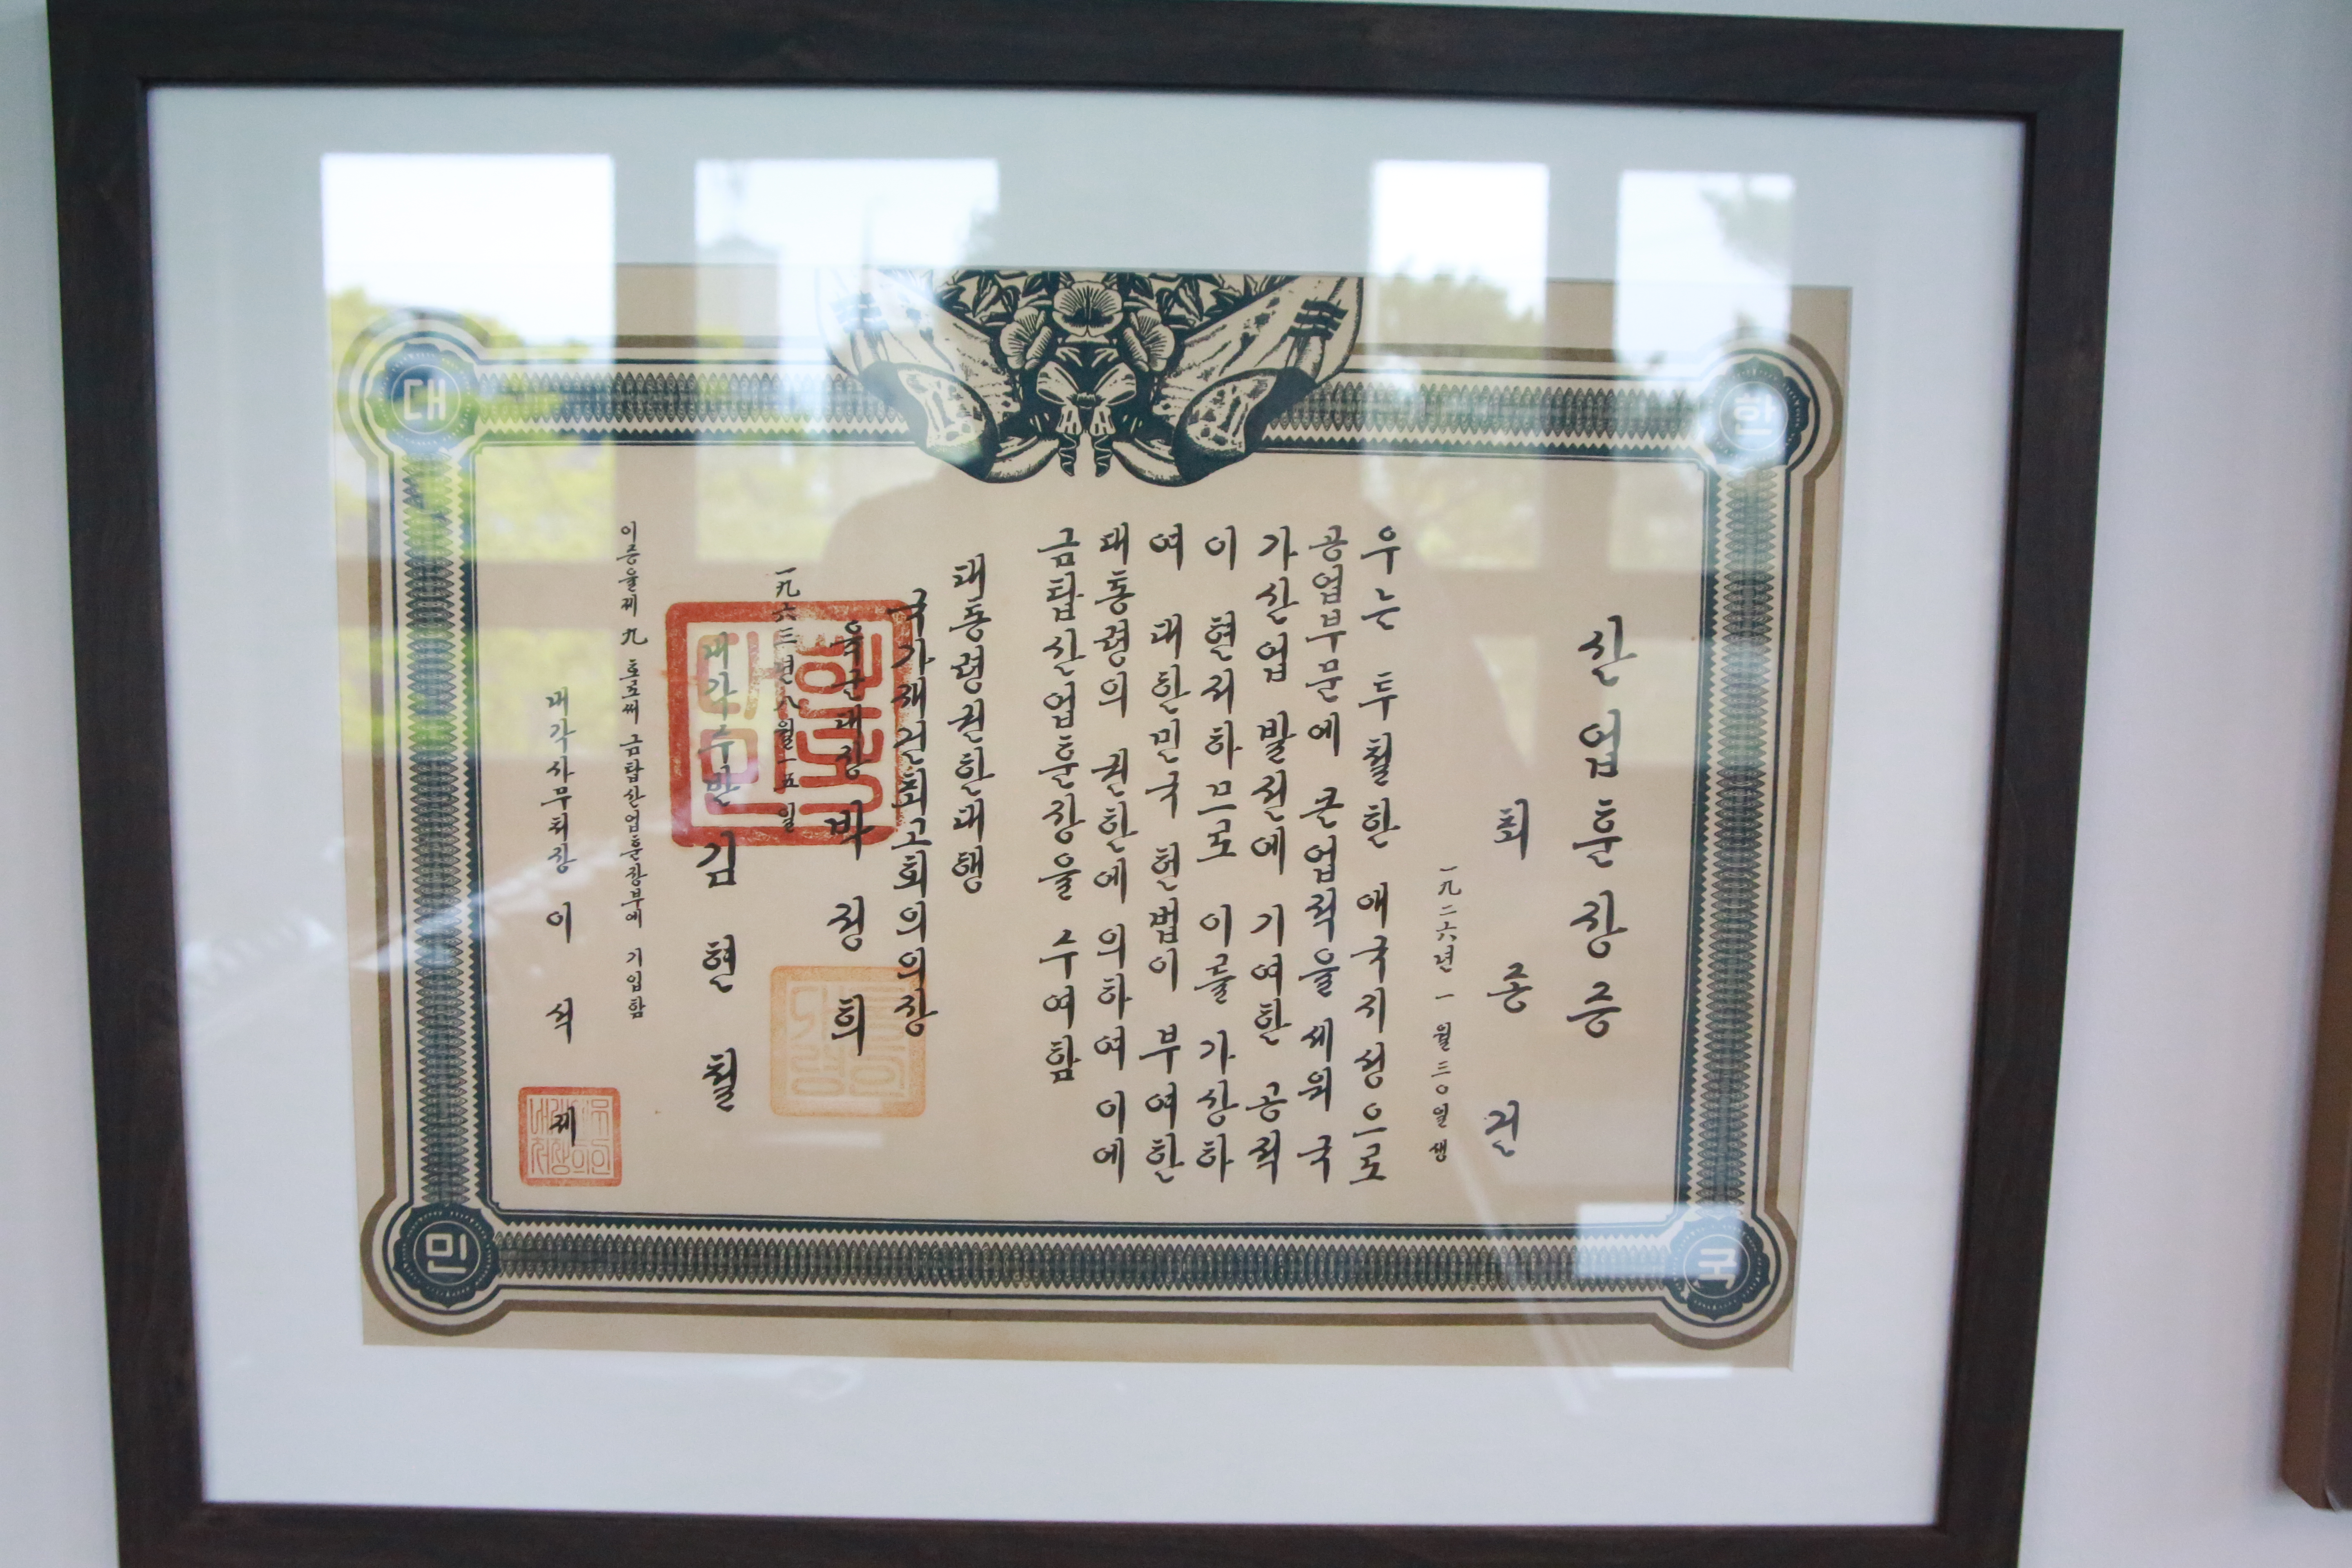 대한민국
산업훈장증
최종건
一九二六년 一월 三〇일생
우는 투철한 애국지성으로
공업부문에 큰업적을 세워 국
가산업 발전에 기여한 공적
이 현저하므로 이를 가상하
여 대한민국 헌법이 부여한
대통령의 권한에 의하여 이에
금탑산업훈장을 수여함
대통령권한대행
국가재건최고회의의장
육군대장 박정희
一九六三년八월一五일
내각수반 김현철
이증을제 九 호로써 금탑산업훈장부에 기입함
내각사무처장 이석제